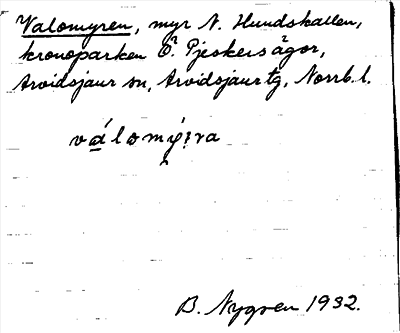 Valomyren, myr N. Hundskallen,
kronoparken Ö. Pjeskers ägor,
Arvidsjaur sn, Arvidsjaur tg, Norrb. l.
B. Nygren 1932.